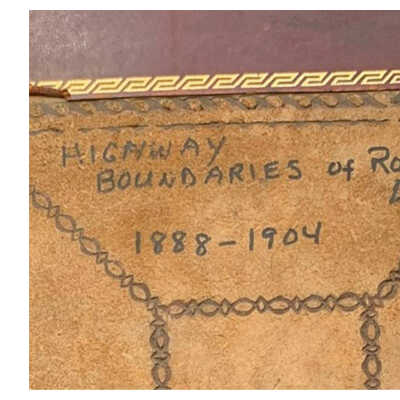 HIGHWAY
BOUNDARIES of
1888-1904